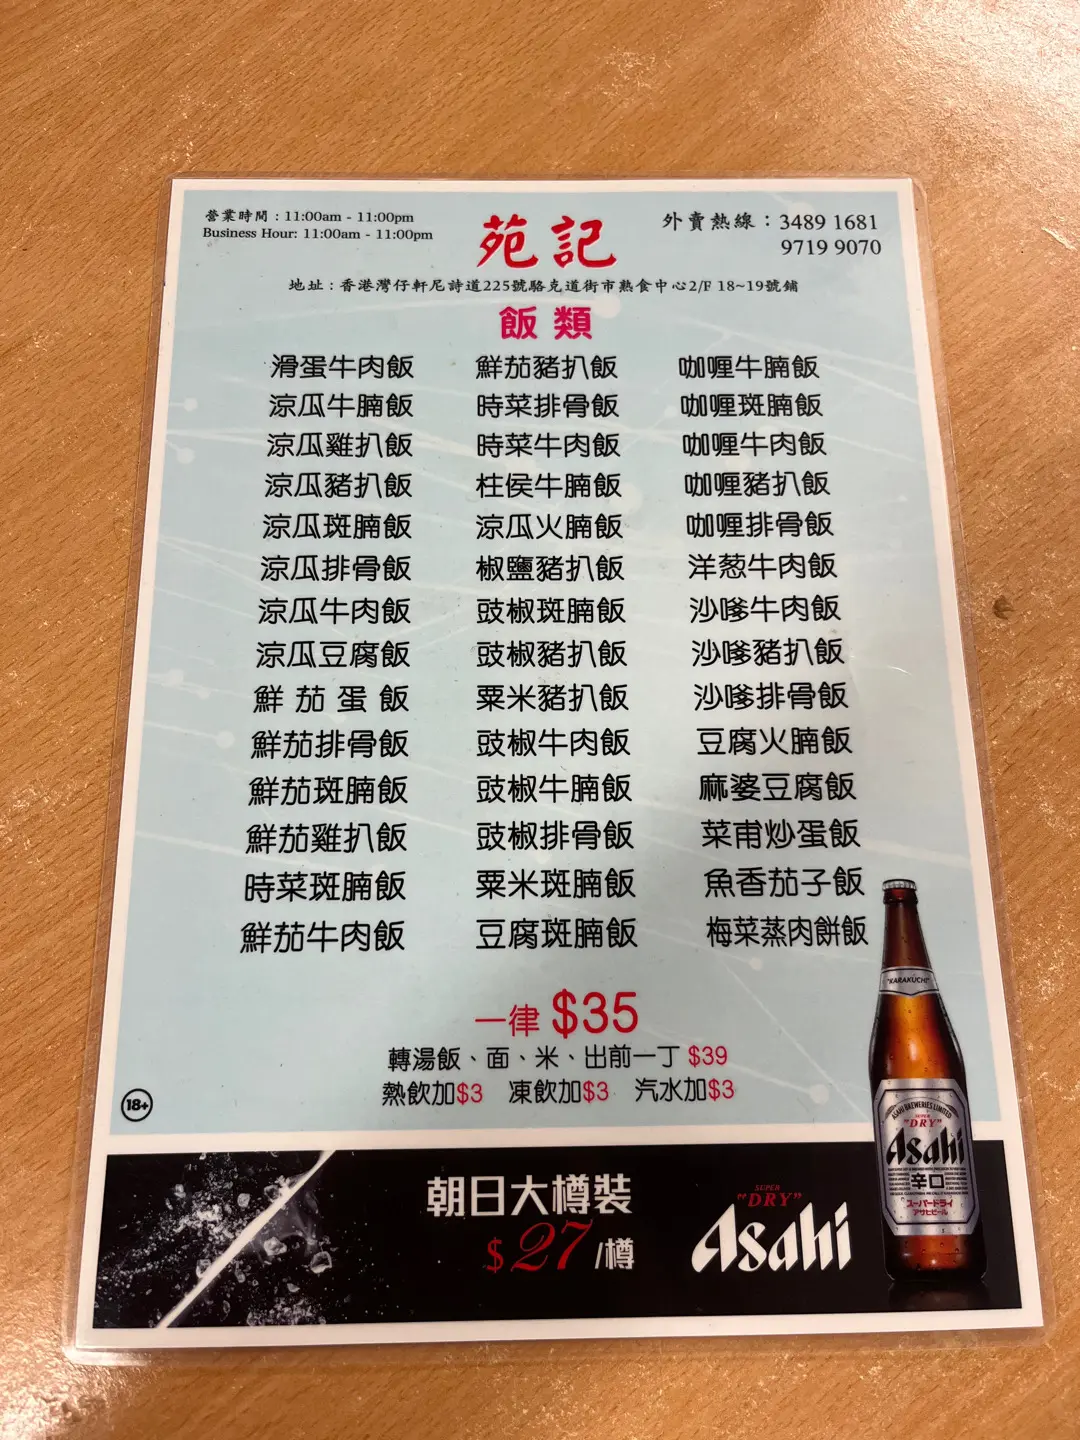 營業時間：11:00am - 11:00pm
Business Hour: 11:00am - 11:00pm
苑記
外賣熱線：3489 1681
9719 9070
地址：香港灣仔軒尼詩道225號駱克道街市熟食中心2/F 18~19號鋪
飯類
滑蛋牛肉飯 鮮茄豬扒飯 咖喱牛腩飯
涼瓜牛腩飯 時菜排骨飯 咖喱斑腩飯
涼瓜雞扒飯 時菜牛肉飯 咖喱牛肉飯
涼瓜豬扒飯 柱侯牛腩飯 咖喱豬扒飯
涼瓜斑腩飯 涼瓜火腩飯 咖喱排骨飯
涼瓜排骨飯 椒鹽豬扒飯 洋葱牛肉飯
涼瓜牛肉飯 豉椒斑腩飯 沙嗲牛肉飯
涼瓜豆腐飯 豉椒豬扒飯 沙嗲豬扒飯
鮮茄蛋飯 粟米豬扒飯 沙嗲排骨飯
鮮茄排骨飯 豉椒牛肉飯 豆腐火腩飯
鮮茄斑腩飯 豉椒牛腩飯 麻婆豆腐飯
鮮茄雞扒飯 豉椒排骨飯 菜甫炒蛋飯
時菜斑腩飯 粟米斑腩飯 魚香茄子飯
鮮茄牛肉飯 豆腐斑腩飯 梅菜蒸肉餅飯
一律 $35
轉湯飯、面、米、出前一丁 $39
熱飲加$3 凍飲加$3 汽水加$3
18+
朝日大樽裝
$27/樽
SUPER
"DRY"
Asahi
"KARAKUCHI"
ASAHI BREWERIES LIMITED
SUPER
"DRY"
Asahi
辛口
スーパードライ
アサヒビール